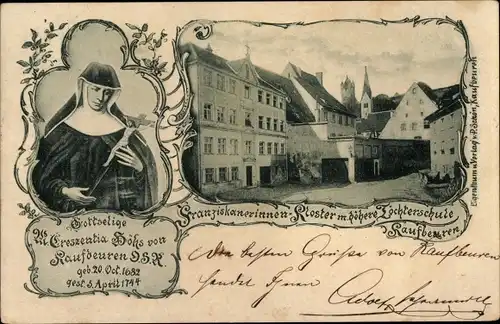 Gottselige
M. Creszentia Höss von
Kaufbeuren O.S.F.
geb. 20. Oct. 1682
gest. 5. April 1744
Franziskanerinnen-Kloster m. höhere Töchterschule
Kaufbeuren.
Eigenthum u. Verlag v. Kaufbeuren
Die besten Grüsse von Kaufbeuren
sendet Ihnen
Adolf